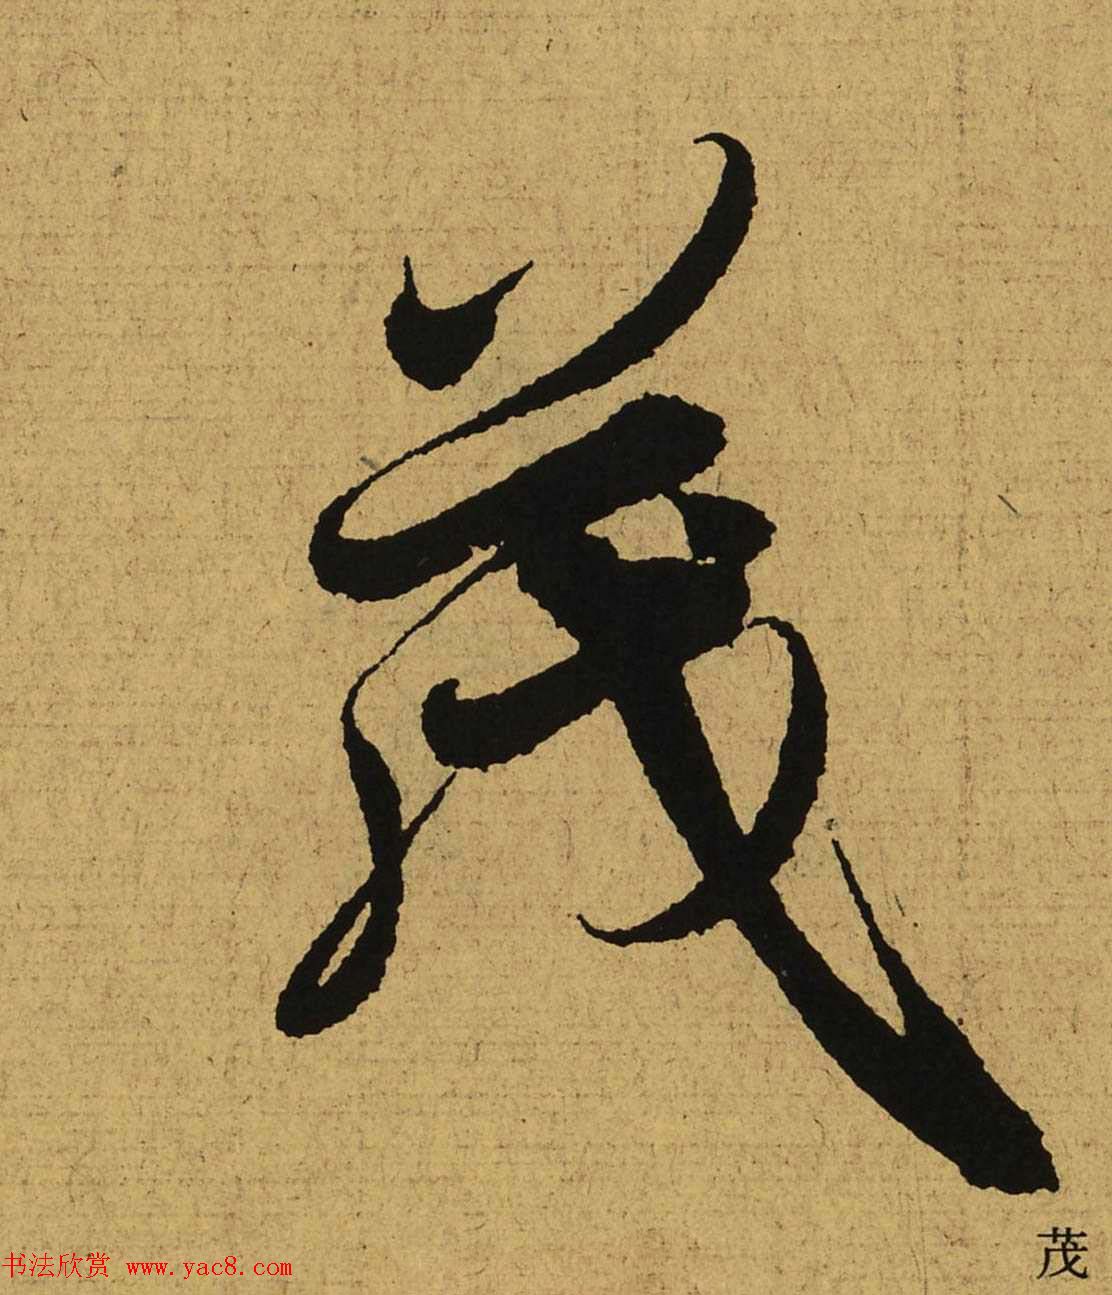 茂
茂
书法欣赏 www.yac8.com